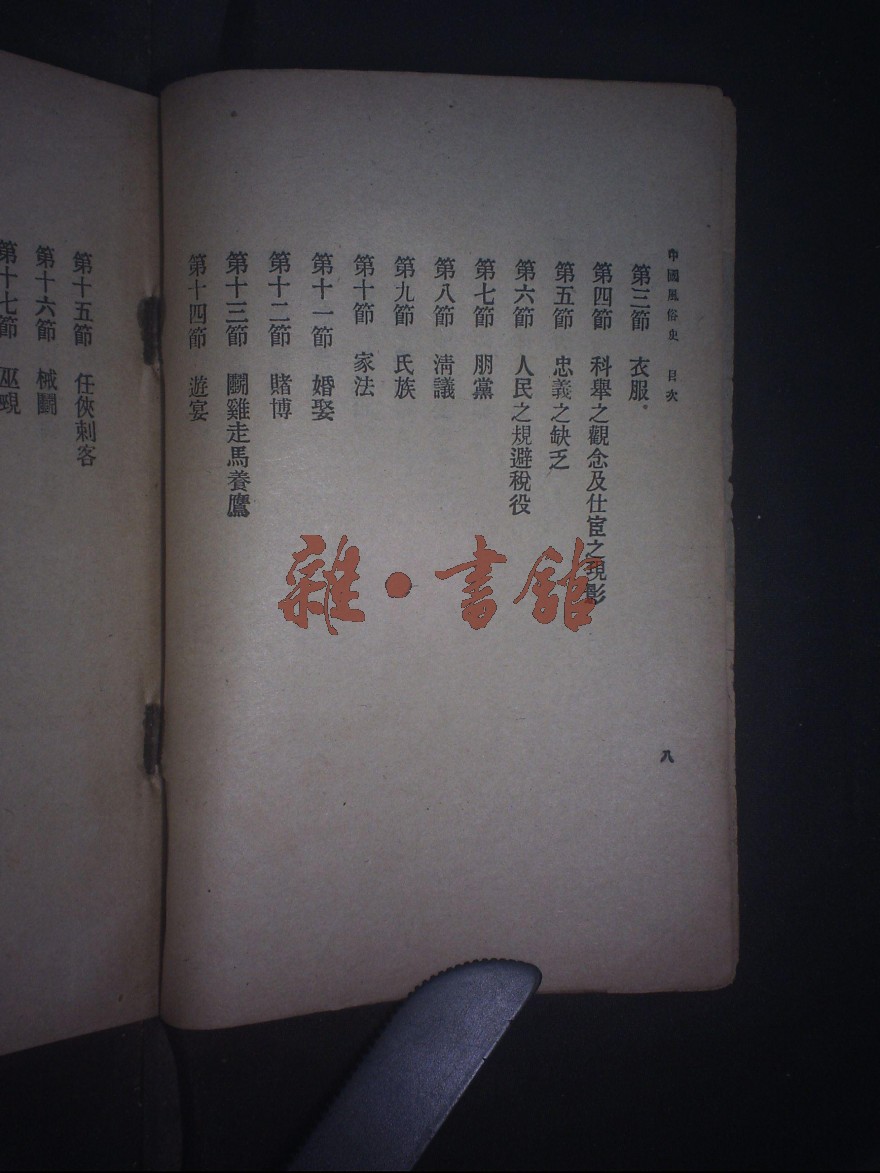 中國風俗史 目次
八
第三節 衣服
第四節 科舉之觀念及仕宦之現影
第五節 忠義之缺乏
第六節 人民之規避稅役
第七節 朋黨
第八節 淸議
第九節 氏族
第十節 家法
第十一節 婚娶
第十二節 賭博
第十三節 鬭雞走馬養鷹
第十四節 遊宴
第十五節 任俠刺客
第十六節 械鬭
第十七節 巫覡
雜·書館